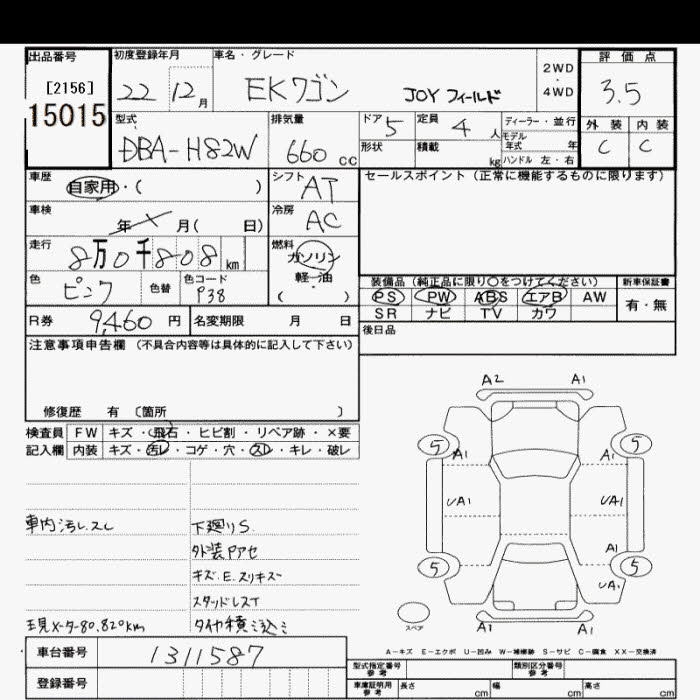 出品番号 初度登録年月 車名・グレード 評価点
[2156] 22 12月 EKワゴン JOY フィールド 2WD・4WD 3.5
15015 外装 内装
C C
型式 排気量 ドア 5 定員 4人 ディーラー・並行
DBA-H82W 660cc 形状 積載 kg モデル年式 年
ハンドル 左・右
車歴 シフト AT セールスポイント(正常に機能するものに限ります)
自家用・( )
車検 冷房 AC
年 月( 日)
走行 燃料
8万0千808km ガソリン
軽・油
( )
色 色替 色コード
ピンク P38
装備品(純正品に限り○をつけてください) 新車保証書
PS PW ABS エアB AW 有・無
SR ナビ TV カワ
R券 9,460円 名変期限 月 日
後日品
注意事項申告欄(不具合内容等は具体的に記入して下さい)
修復歴 有 〔箇所 〕
検査員 FW キズ・飛石・ヒビ割・リペア跡・×要
記入欄 内装 キズ・汚レ・コゲ・穴・スレ・キレ・破レ
A2 A1
5 A1 A1 5
UA1 UA1
A1
5 5
UA1
スペア A1 A1
車内汚レスレ 下廻りS
外装Pアセ
キズ.E.スリキズ
スタッドレスT
現メーター80,820km タイヤ積ミ込ミ
A-キズ E-エクボ U-凹み W-補修跡 S-サビ C-腐食 XX-交換済
車台番号 1311587
登録番号
型式指定番号 参考 類別区分番号 参考
車庫証明用 参考 長さ cm 幅 cm 高さ cm